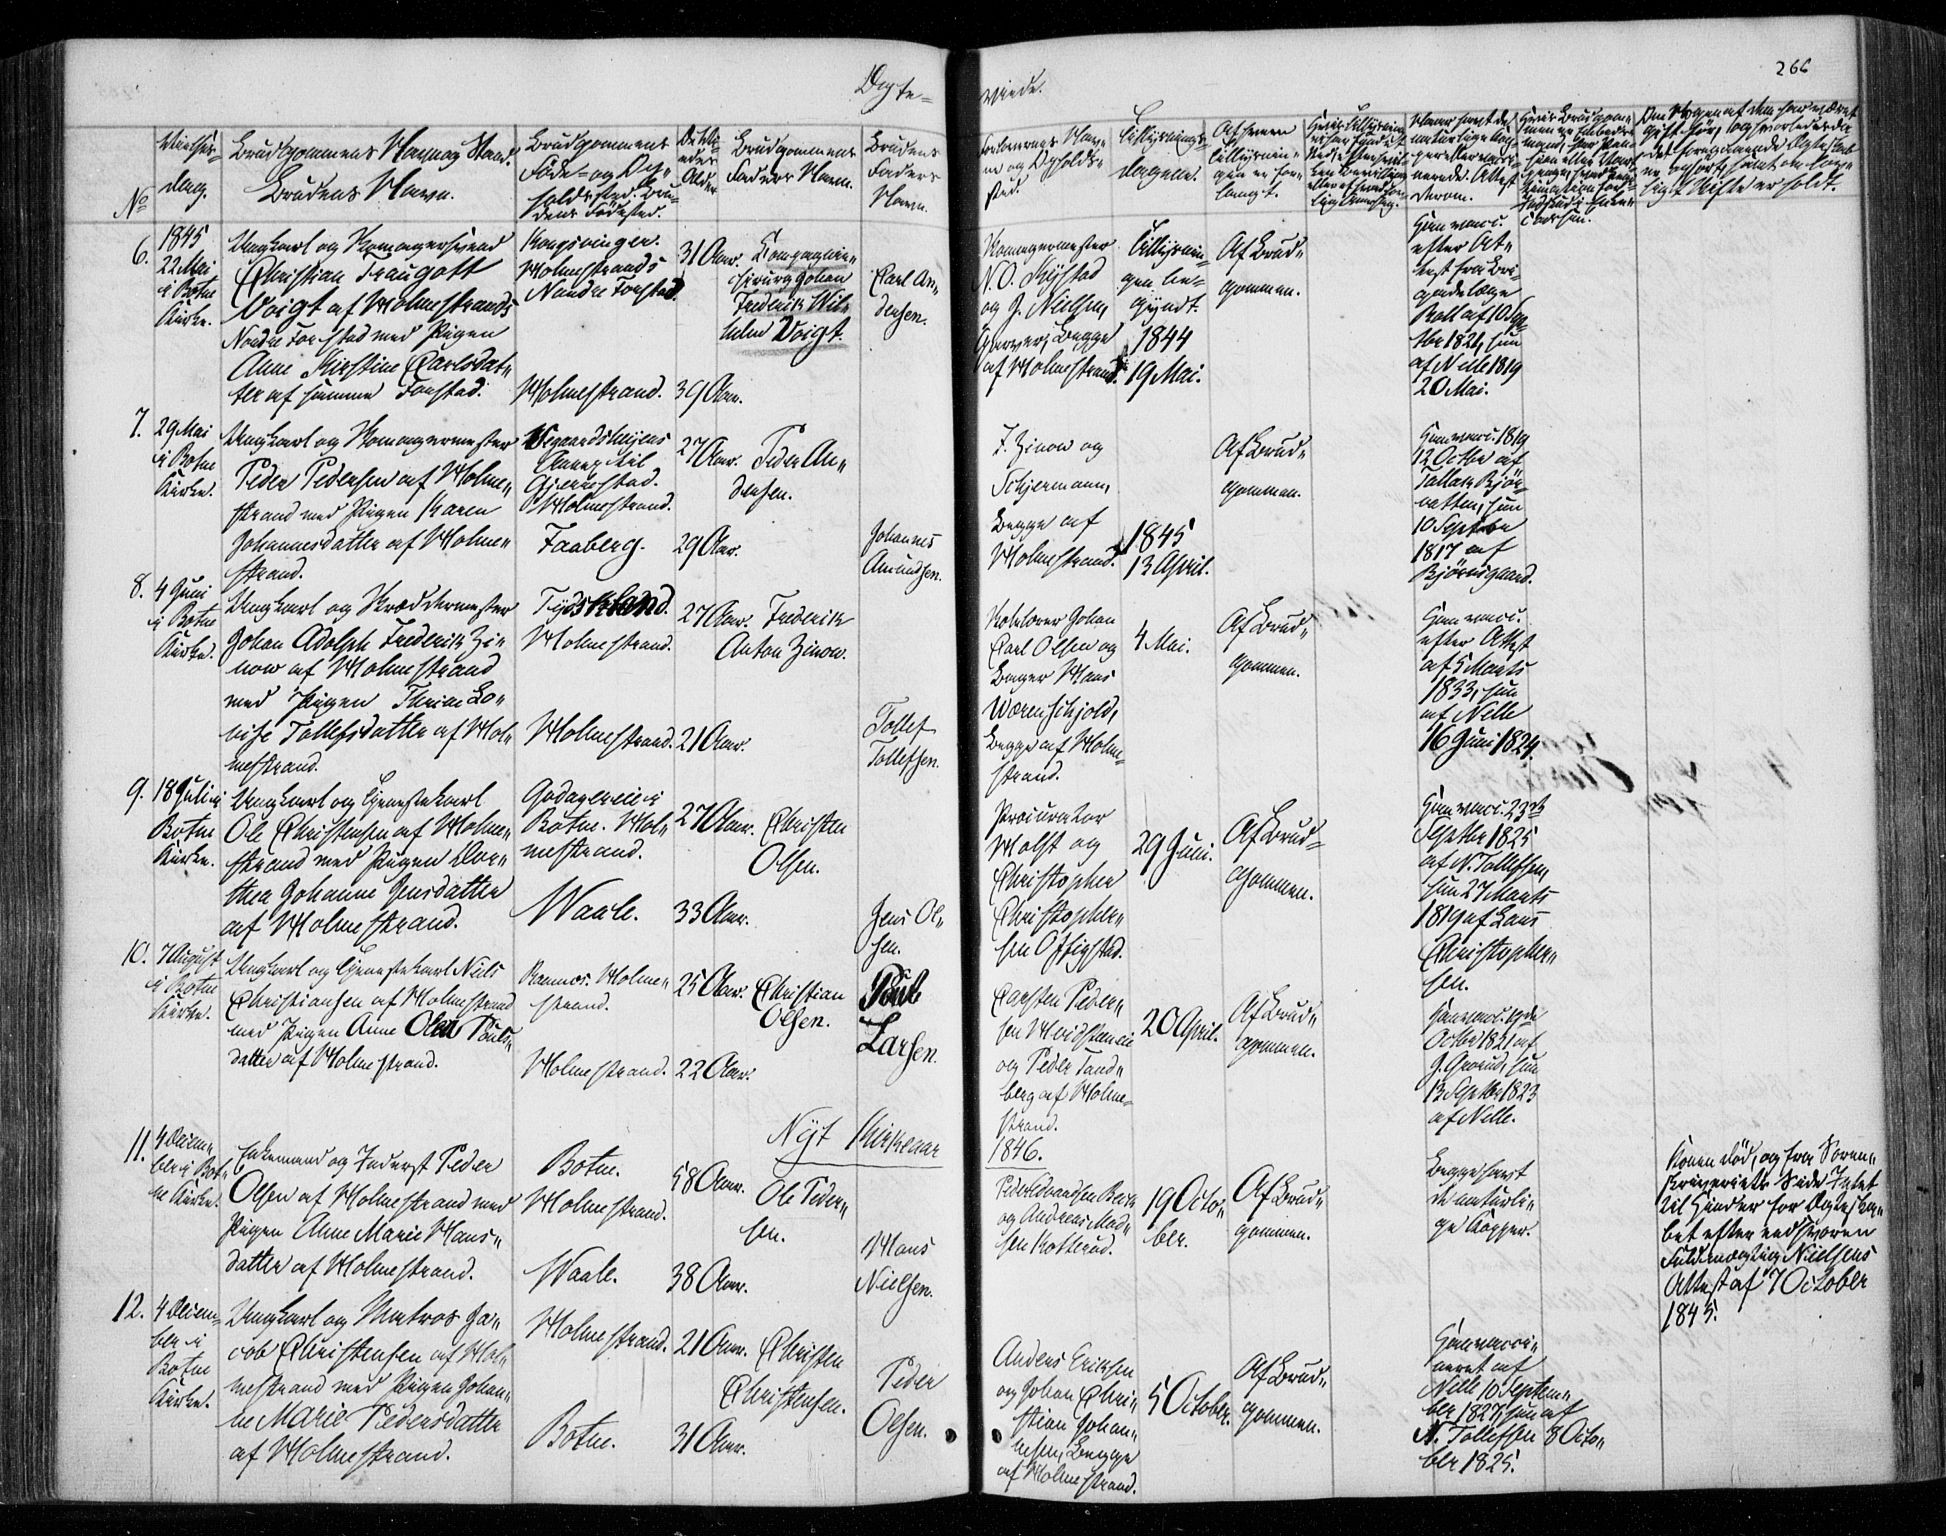 266
Ægte-
viede.
No
Vielses-
dag.
Brudgommens Navn og Stand.
Brudens Navn.
Brudgommens
Føde- og Op-
holdssted. Bru-
dens Fødested.
Brudgommens
Faders Navn.
Brudens
Faders
Navn.
Forlovernes Nav-
ne og Opholds-
sted.
Tillysnings-
dagene.
Af hvem
Tillysnin-
gen er for-
langt.
6.
1845
22 Mai
i Botne
Kirke.
Ungkarl og
Christian Traugott
Voigt af Holmestrands
Nordre Forstad med Pigen
Anne Kirstine Carlsdat-
ter af samme Forstad.
Kongsvinger.
Holmestrands
Nordre Forstad.
Holmestrand.
31 Aar.
39 Aar.
Compagnie-
chirurg Johan
Frederik Wil-
helm Voigt.
Carl An-
dersen.
N. O.
og J. Nielsen,
Garver, begge
af Holmestrand.
Tillysnin-
gen be-
gyndt.
1844
19 Mai.
Af Brud-
gommen.
Han vacc.
efter At-
test fra Bri-
gadelæge
Boll af 10 Sep-
tbr 1821, hun
af Nelle 1819
20 Mai.
7.
29 Mai
i Botne
Kirke.
Ungkarl og
Peder Pedersen af Holme-
strand med Pigen Karen
Johannesdatter af Holme-
strand.
Vegaardsheijens
Annex til
Gjerrestad.
Holmestrand.
Faaberg.
27 Aar.
29 Aar.
Peder An-
dersen.
Johannes
Amundsen.
F. Zinow og
Schjermann,
begge af
Holmestrand.
1845
13 April.
Af Brud-
gommen.
Han vacc. 1819
12 Octbr af
Tallak Bjør-
vatten, hun
10 Septbr
1817 af
Bjørnsgaard.
8.
4 Juni
i Botne
Kirke.
Ungkarl og Skræddermester
Johan Adolph Frederik Zi-
now af Holmestrand
med Pigen Thrine Lo-
vise Tollefsdatter af Hol-
mestrand.
Tydskland.
Holmestrand.
Holmestrand.
27 Aar.
21 Aar.
Frederik
Anton Zinow.
Tollef
Tollefsen.
Johan
Carl Olsen og
Bager Hans
Wærenschjold,
begge af Holme-
strand.
4 Mai.
Af Brud-
gommen.
Han vacc.
efter Attest
af 5 Marts
1833, hun
af Nelle
16 Juni 1824.
9.
18 Juli i
Botne
Kirke.
Ungkarl og Tjenestekarl
Ole Christensen af Holme-
strand med Pigen Dor-
thea Johanne Jensdatter
af Holmestrand.
Botne. Hol-
mestrand.
Waale.
27 Aar.
33 Aar.
Christen
Olsen.
Jens Ol-
sen.
Procurator
Holst og
Christopher
Christopher-
sen
29 Juni.
Af Brud-
gommen.
Han vacc. 23de
Septbr 1825
af N. Tollefsen,
hun 27 Marts
1819 af Lars
Christopher-
sen.
10.
7 August
i Botne
Kirke.
Ungkarl og Tjenestekarl Niels
Christiansen af Holmestrand
med Pigen Anne Olea Pouls-
datter af Holmestrand.
Ramnæs. Holme-
strand.
Holmestrand.
25 Aar.
22 Aar.
Christian
Olsen.
Poul
Larsen.
Carsten Peder-
sen
og Peder Tand-
berg af Holme-
strand.
20 April.
Af Brud-
gommen.
Han vacc. 19de
Octbr 1821 af
J. Grorud, hun
13 Septbr 1823
af Nelle.
Nyt Kirkeaar
1846.
11.
4 Decem-
ber i Bot-
ne Kirke.
Enkemand og Inderst Peder
Olsen af Holmestrand med
Pigen Anne Marie Hans-
datter af Holmestrand.
Botne.
Holmestrand.
Waale.
58 Aar.
38 Aar.
Ole Peder-
sen.
Hans
Nielsen.
og Andreas Mad-
sen Kotterud.
19 Octo-
ber.
Af Brud-
gommen.
Begge havt
de naturli-
ge Kopper.
Konen død, og fra Soren-
skriveriets Side Intet
til Hinder for Ægteska-
bet efter edsvoren
Fuldmægtig Nielsens
Attest af 7 October
1845.
12.
4 Decem-
ber i
Botne
Kirke.
Ungkarl og Matros Ja-
cob Christensen af Hol-
mestrand med Pigen Johan-
ne Marie Pedersdatter
af Holmestrand.
Holmestrand.
Botne.
21 Aar.
31 Aar.
Christen
Christensen.
Peder
Olsen.
Anders Eriksen
og Johan Chri-
stian Johan-
nesen, begge
af Holmestrand.
5 October.
Af Brud-
gommen.
Han vacci-
neret af
Nelle 10 Septem-
ber 1827, hun af
N. Tollefsen 8 Octo-
ber 1825.